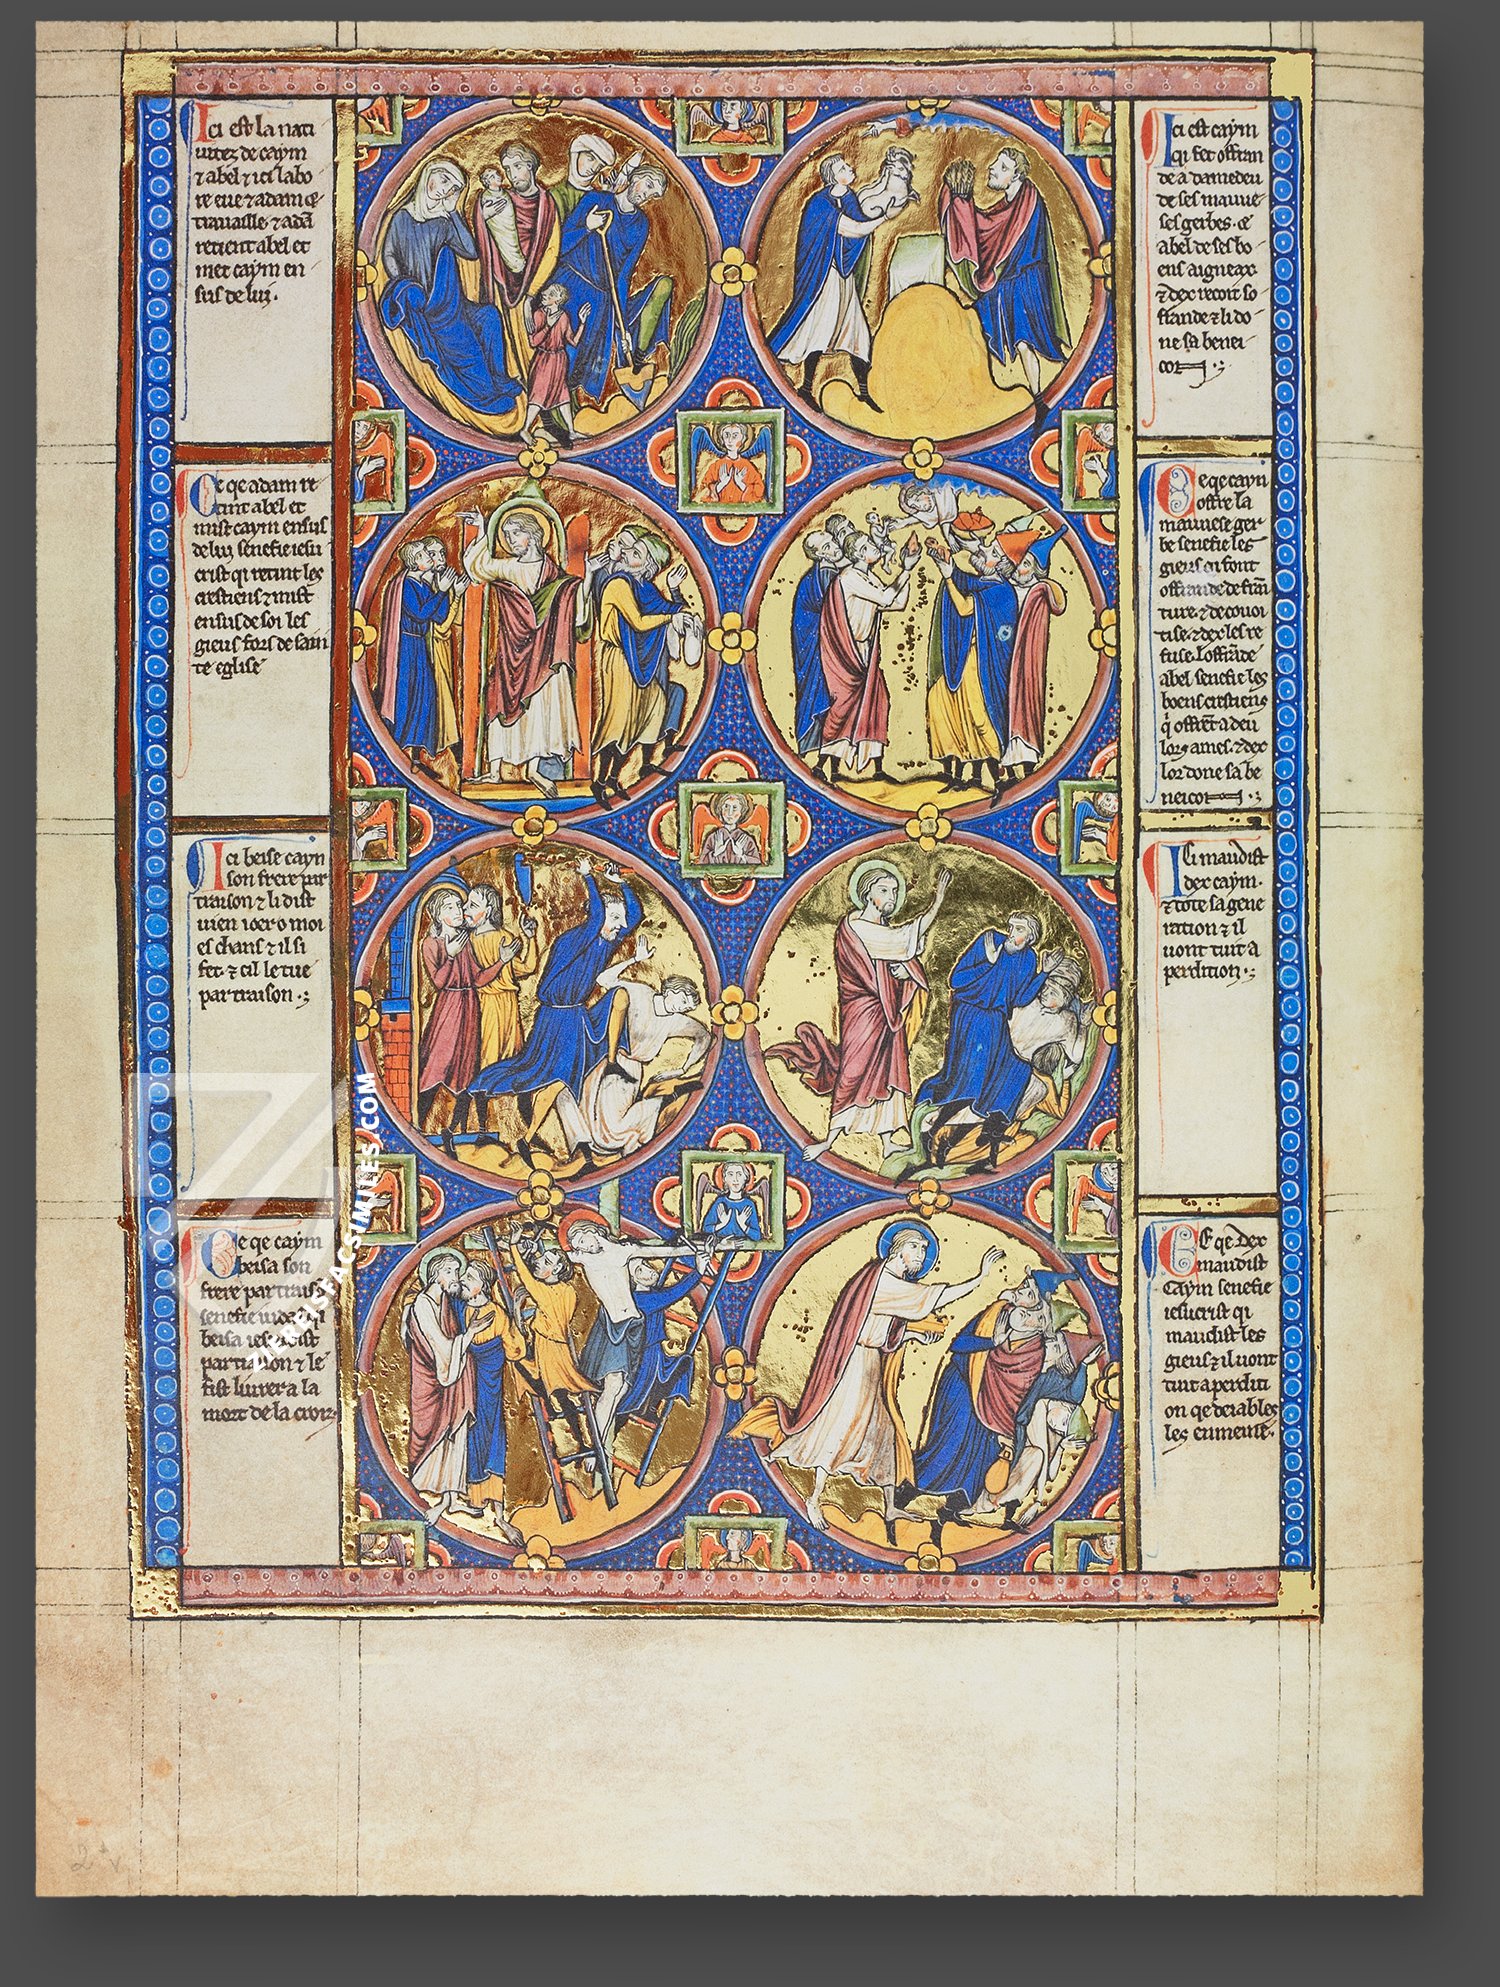 Ici est la nati
uitez de caym
⁊ abel ⁊ ici labo
re eue ⁊ adam
trauaille ⁊ adā
retient abel et
met caym en
sus de lui.
Ce qe adam re
tint abel et
mist caym ensus
de lui senefie iesu
crist qi retint les
crestiens ⁊ mist
ensus de soi les
gieus fors de sain
te eglise
Ici beise caym
son frere par
traison ⁊ li dist
uien ioer o moi
es chans ⁊ il si
fet ⁊ cil le tue
par traison
Ce qe caym
beisa son
frere par traison
senefie iudas qi
beisa iesucrist
par traison ⁊ le
fist liurer a la
mort de la croiz
Ici est caym
qi fet offran
de a damedeu
de ses mauue
ses gerbes. ⁊
abel de ses bo
ens aigneax
⁊ dex recoit so
ffrande ⁊ li do
ne sa benei
con
Ce qe caym
offre la
mauuese ger
be senefie les
gieus qi font
offrande de
ture ⁊ de couoi
tise ⁊ dex les re
fuse. loffrāde
abel senefie les
boens crestiens
qi offrēt a deu
lor ames. ⁊ dex
lor done sa be
neicon
Ici maudist
dex caym.
⁊ tote sa gene
ration ⁊ il
uont tuit a
perdition
Ce qe dex
maudist
Caym senefie
iesucrist qi
maudist les
gieus ⁊ il uont
tuit a perditi
on qe deiables
les enmeine.
2 v
ZIEREISFACSIMILES.COM